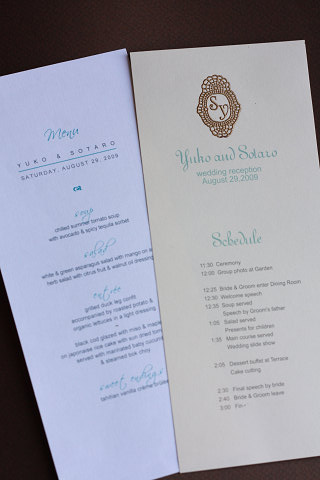 Menu
YUKO & SOTARO
SATURDAY, AUGUST 29, 2009
soup
chilled summer tomato soup
with avocado & spicy tequila sorbet
salad
white & green asparagus salad with mango on
herb salad with citrus fruit & walnut oil dressing
entrée
grilled duck leg confit
accompanied by roasted potato &
organic lettuces in a light dressing
~
black cod glazed with miso &
on japonaise rice cake with sun dried
served with marinated baby
& steamed bok choy
sweet endings
tahitian vanilla crème
SY
Yuko and Sotaro
wedding reception
August 29,2009
Schedule
11:30 Ceremony
12:00 Group photo at Garden
12:25 Bride & Groom enter Dining Room
12:30 Welcome speech
12:35 Soup served
Speech by Groom's father
1:05 Salad served
Presents for children
1:35 Main course served
Wedding slide show
2:05 Dessert buffet at Terrace
Cake cutting
2:30 Final speech by bride
2:40 Bride & Groom leave
3:00 Fin~